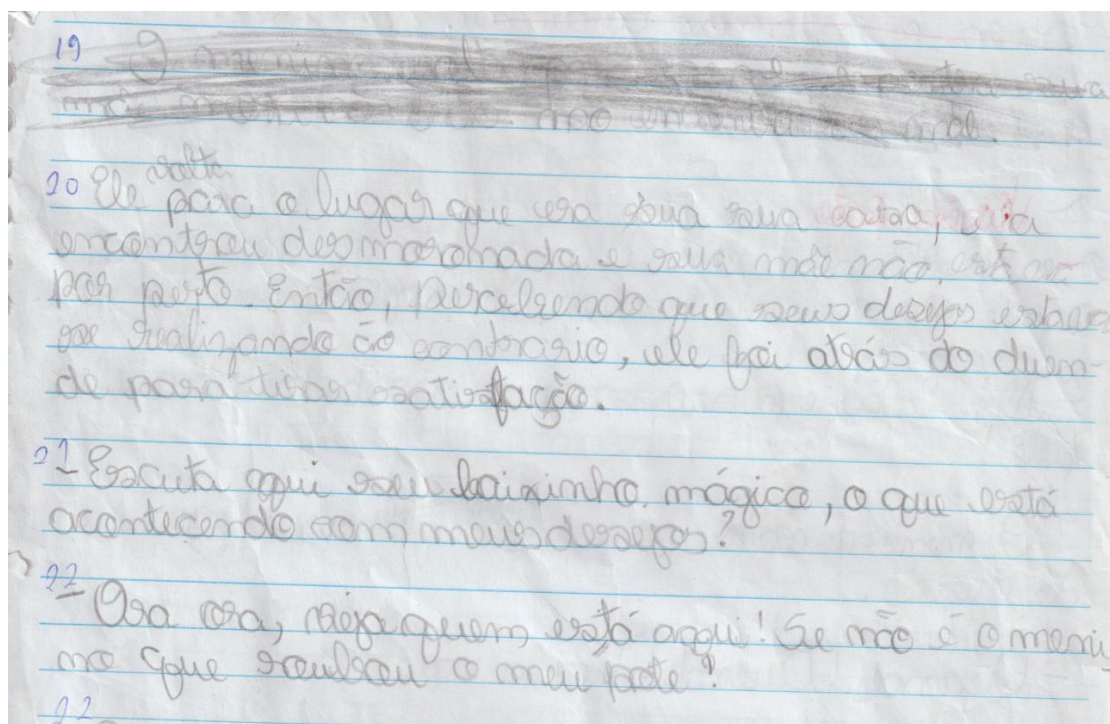 19 O menino
não encontra mal.
volta
20 Ele para o lugar que era sua sua, e a
encontrou desmoronada e sua mãe não estava
por perto. Então, percebendo que seus desejos estava
se realizando ao contrario, ele foi atrás do duen-
de para tirar satisfação.
21 - Escuta aqui seu baixinho mágico, o que está
acontecendo com meus desejos?
22 - Ora ora, veja quem está aqui! Se não é o meni-
no que roubou o meu pote!
22